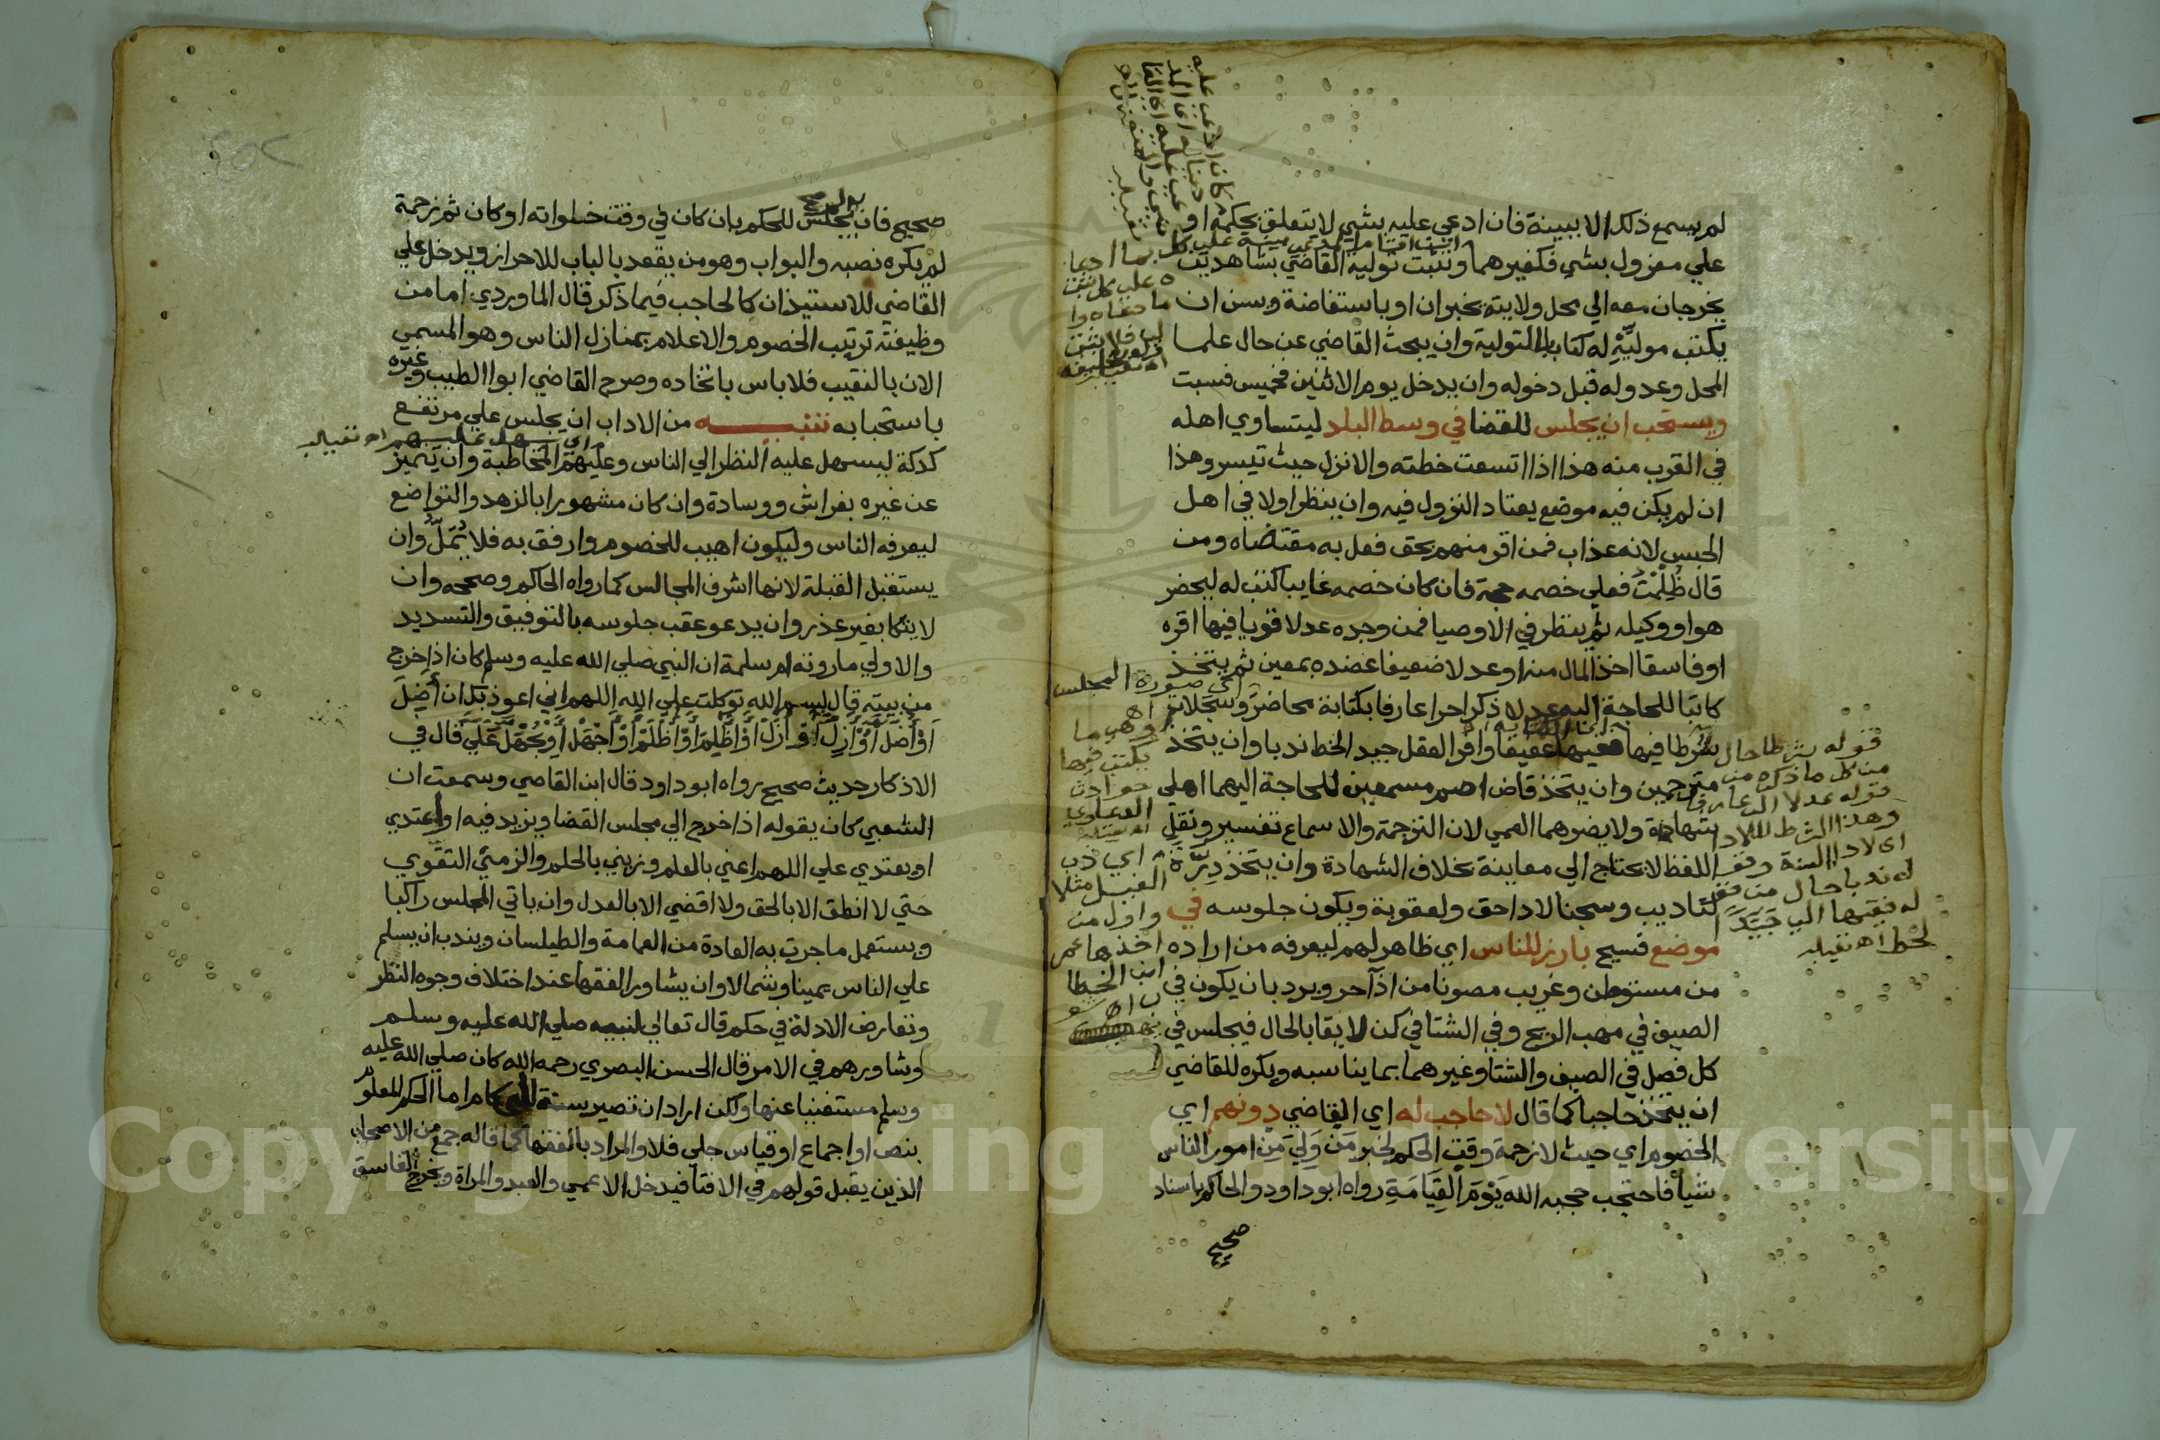 لم يسمع ذلك الا ببينة فان ادعي عليه بشي لا يتعلق بحكمه او
علي معزول بشي فكغيرهما وتثبت تولية القاضي بشاهدين
يخرجان معه الي محل ولايته يخبران او باستفاضة ويسن ان
يكتب موليه له كتابا بالتولية وان يبحث القاضي عن حال علما
المحل وعدوله قبل دخوله وان يدخل يوم الاثنين فخميس فسبت
ويستحب ان يجلس للقضا في وسط البلد ليتساوي اهله
في القرب منه هذا اذا اتسعت خطته والا نزل حيث تيسر وهذا
ان لم يكن فيه موضع يعتاد النزول فيه وان ينظر اولا في اهل
الحبس لانه عذاب فمن اقر منهم بحق فعل به مقتضاه ومن
قال ظُلِمْتُ فعلي خصمه حجة فان كان خصمه غايبا كتب له ليحضر
هو او وكيله ثم ينظر في الاوصيا فمن وجده عدلا قويا فيها اقره
او فاسقا اخذ المال منه او عدلا ضعيفا عضده بمعين ثم يتخذ
كاتبا للحاجة اليه عدلا ذكرا حرا عارفا بكتابة محاضر وسجلات
شرطا فيها فقيها عفيفا وافر العقل جيد الخط ندبا وان يتخذ
مترجمين وان يتخذ قاض اصم مسمعين للحاجة اليهما اهلي
شهادة ولا يضرهما العمي لان الترجمة والاسماع تفسير ونقل
اللفظ لا يحتاج الي معاينة بخلاف الشهادة وان يتخذ دِرَّة
لتاديب وسجنا لاداحق ولعقوبة ويكون جلوسه في
موضع فسيح بارز للناس اي ظاهر لهم ليعرفه من اراده
من مستوطن وغريب مصونا من اذا حر وبرد بان يكون في
الصيف في مهب الريح وفي الشتا في كن لايقا بالحال فيجلس في
كل فصل في الصيف والشتا وغيرهما بما يناسبه ويكره للقاضي
ان يتخذ حاجبا كما قال لا حاجب له اي القاضي دونهم اي
الخصوم اي حيث لا زحمة وقت الحكم لخبر مَن وَلِيَ مِن امور الناس
شيأ فاحتجب حجبه الله يَوْمَ القِيَامَةِ رواه ابو داود والحاكم باسناد
صحيح
قوله شرطا حال
من كل ما ذكره من
قوله عدلا الي عارفا
وهذا الشرط للاد
له ندبا حال من
له فقيها الي جَيِّدَ ا
لخط اه
اي صورة المجلس
يكتب فيها
الدعاوي
اي ذكر
الفيل مثلا
واول من
اخذها عمر
ابن الخطا
صحيح فان لم يجلس للحكم بان كان في وقت خلواته او كان ثم زحمة
لم يكره نصبه والبواب وهو من يقعد بالباب للاحراز ويدخل علي
القاضي للاستيذان كالحاجب فيما ذكر قال الماوردي اما من
وظيفته ترتيب الخصوم والاعلام بمنازل الناس وهو المسمي
الان بالنقيب فلا باس باتخاده وصرح القاضي ابوا الطيب وغيره
باستحبابه تنبيه من الاداب ان يجلس علي مرتفع
كدكة ليسهل عليه النظر الي الناس وعليهم المخاطبة وان يتميز
عن غيره بفراش ووسادة وان كان مشهورا بالزهد والتواضع
ليعرفه الناس وليكون اهيب للخصوم وارفق به فلا يَمَلّ وان
يستقبل القبلة لانها اشرف المجالس كما رواه الحاكم وصححه وان
لا يتكا بغير عذر وان يدعو عقب جلوسه بالتوفيق والتسديد
والاولي ما روته ام سلمة ان النبي صلي الله عليه وسلم كان اذا خرج
من بيته قال بسم الله توكلت علي الله اللهم اني اعوذ بك ان أَضِلَّ
أَوْ أُضَلَّ أَوْ أَزِلَّ أَوْ أُزَلَّ أَوْ أَظْلِمَ أَوْ أُظْلَمَ أَوْ أَجْهَلَ أَوْ يُجْهَلَ عَلَيَّ قال في
الاذكار حديث صحيح رواه ابو داود قال ابن القاضي وسمعت ان
الشعبي كان يقوله اذا خرج الي مجلس القضا ويزيد فيه او اعتدي
او يعتدي علي اللهم اعني بالعلم وزيني بالحلم والزمني التقوي
حتي لا انطق الا بالحق ولا اقضي الا بالعدل وان ياتي المجلس راكبا
ويستعمل ما جرت به العادة من العمامة والطيلسان ويندب ان يسلم
علي الناس يمينا وشمالا وان يشاور الفقها عند اختلاف وجوه النظر
وتعارض الادلة في حكم قال تعالي لنبيه صلي الله عليه وسلم
وشاورهم في الامر قال الحسن البصري رحمه الله كان صلي الله عليه
وسلم مستغنيا عنها ولكن اراد ان تصير سنة للحكام اما الحكم المعلوم
بنص او اجماع او قياس جلي فلا والمراد بالفقها كما قاله جمع من الاصحاب
الذين يقبل قولهم في الافتا فيدخل الاعمي والعبد والمراة ويخرج الفاسق
Copyright © King Saud University